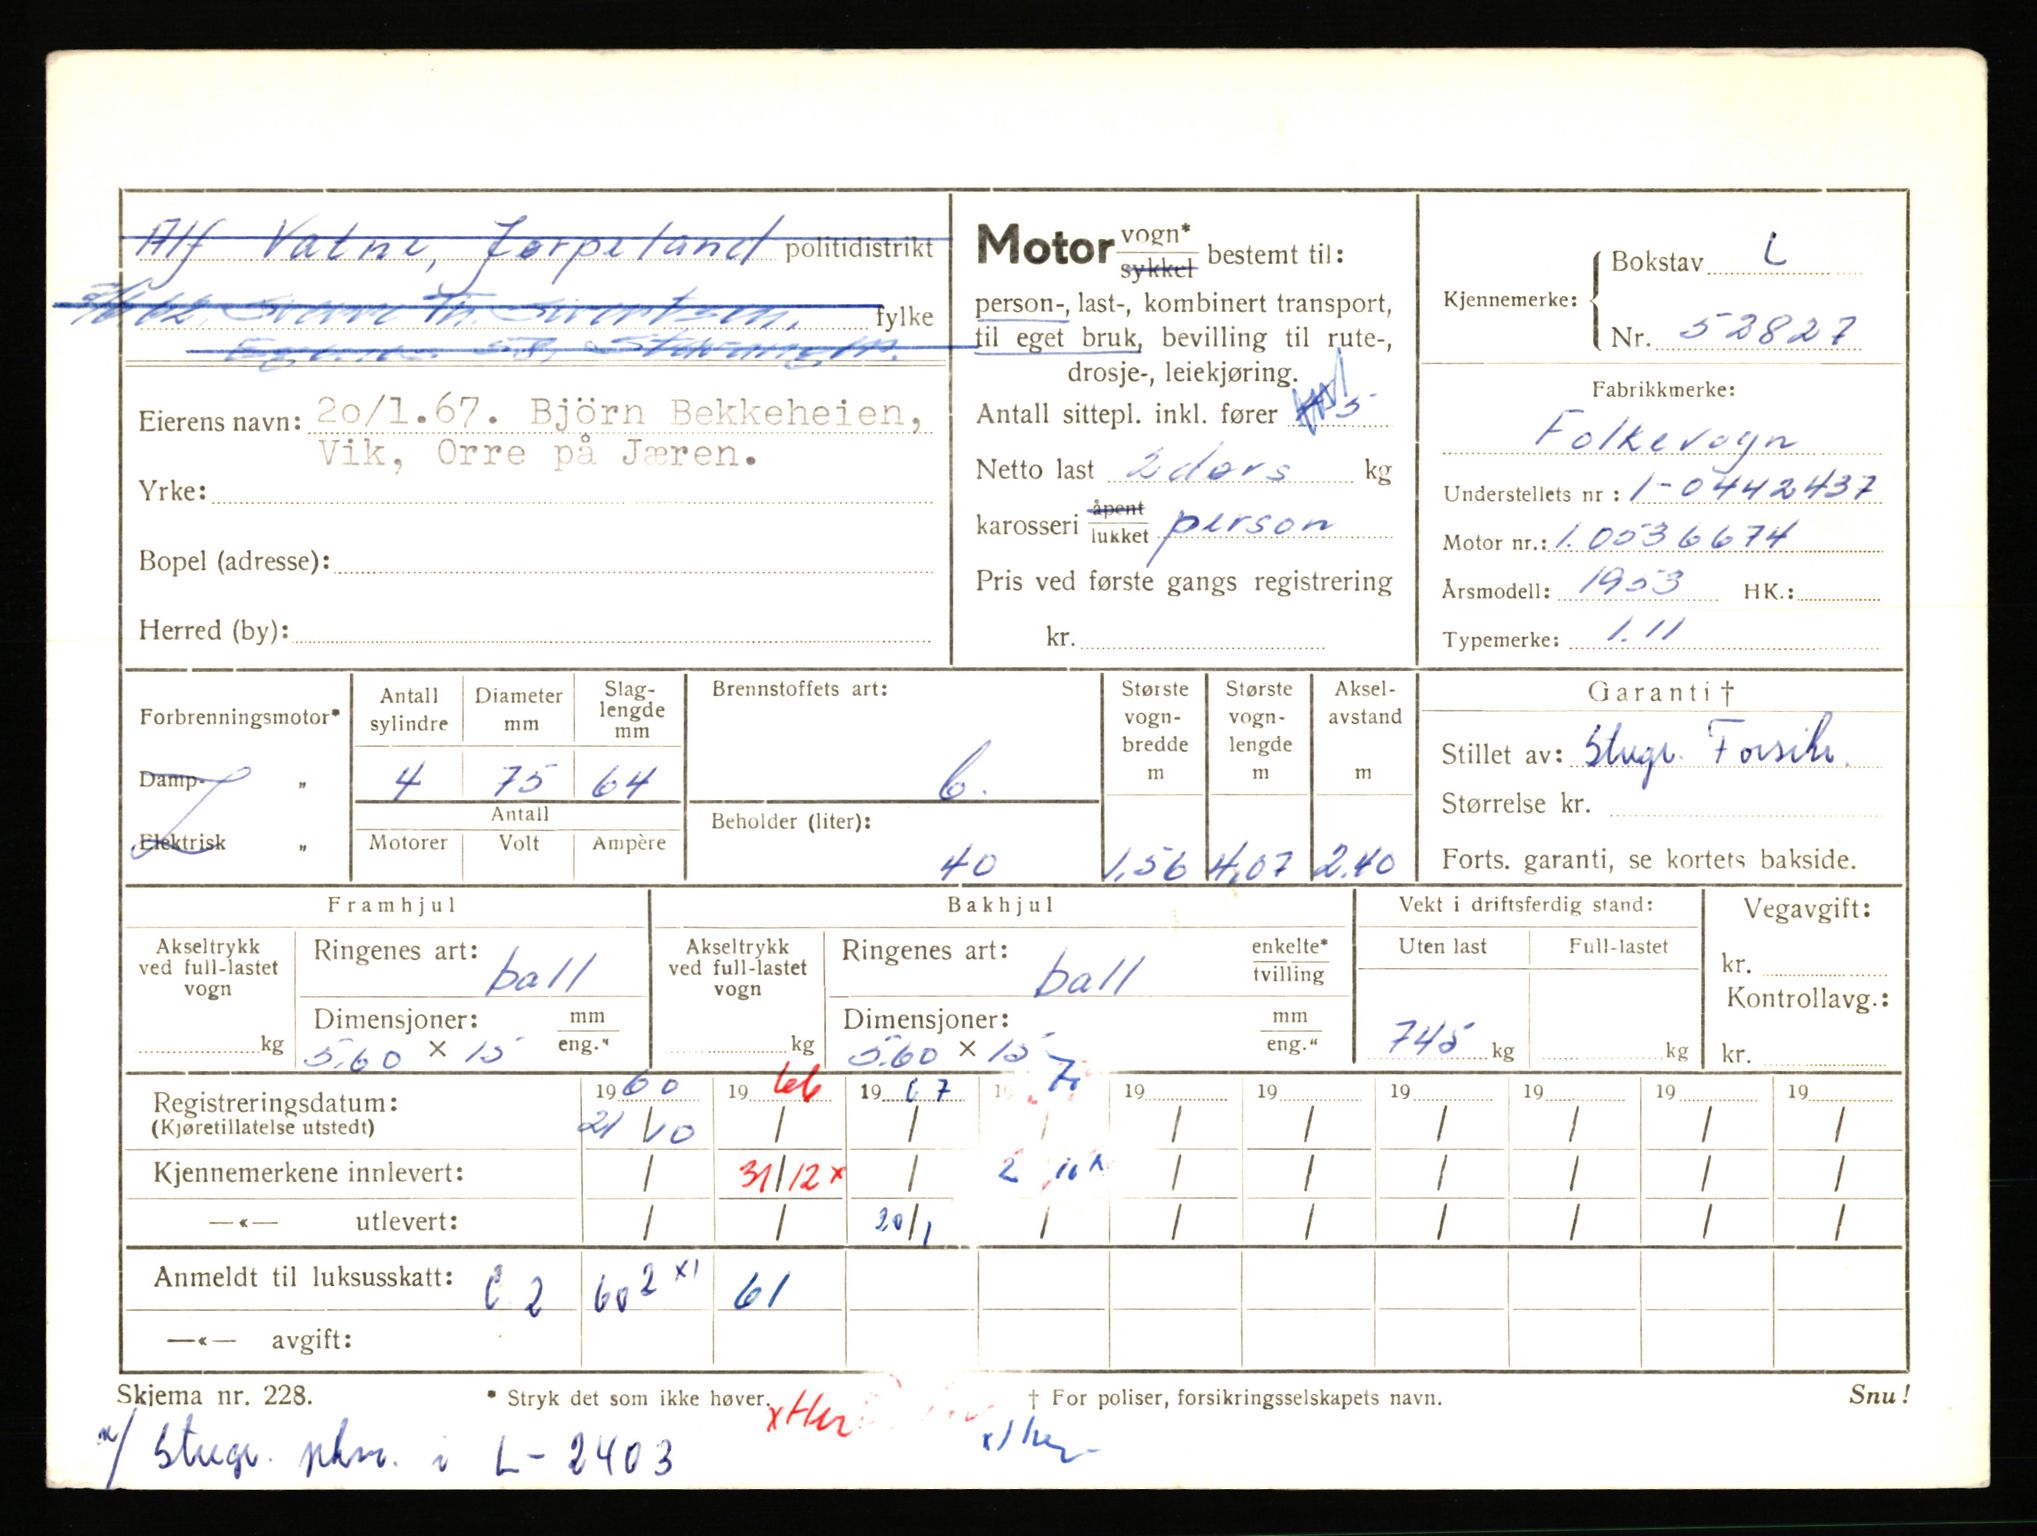 Alf Vatne, Jørpeland politidistrikt
Sverre Fr. Sivertsen, fylke
Eierens navn: 2o/1.67. Björn Bekkeheien,
Vik, Orre på Jæren.
Yrke:
Bopel (adresse):
Herred (by):
Motor vogn* sykkel bestemt til:
person-, last-, kombinert transport,
til eget bruk, bevilling til rute-,
drosje-, leiekjøring.
Antall sittepl. inkl. fører 5
Netto last 2 dørs kg
karosseri åpent lukket person
Pris ved første gangs registrering
kr.
Kjennemerke: Bokstav L
Nr. 52827
Fabrikkmerke:
Folkevogn
Understellets nr : 1-0442437
Motor nr.: 1.0536674
Årsmodell: 1953 HK.:
Typemerke: 1.11
Forbrenningsmotor*
Damp- „
Elektrisk „
Antall sylindre 4
Diameter mm 75
Slaglengde mm 64
Antall
Motorer Volt Ampère
Brennstoffets art: b.
Beholder (liter): 40
Største vognbredde m 1,56
Største vognlengde m 4,07
Akselavstand m 2.40
Garanti †
Stillet av: Stvgr. Forsikr.
Størrelse kr.
Forts. garanti, se kortets bakside.
Framhjul
Akseltrykk ved full-lastet vogn kg
Ringenes art: ball
Dimensjoner: mm eng."
5.60 × 15
Bakhjul
Akseltrykk ved full-lastet vogn kg
Ringenes art: ball enkelte* tvilling
Dimensjoner: mm eng."
5.60 × 15
Vekt i driftsferdig stand:
Uten last Full-lastet
745 kg kg
Vegavgift:
kr.
Kontrollavg.:
kr.
Registreringsdatum: 1960 1966 1967 19 19 19 19 19 19 19
(Kjøretillatelse utstedt) 21/10 / / / / / / / / /
Kjennemerkene innlevert: / 31/12 x / / / / / / /
—«— utlevert: / / 20/1 / / / / / / /
Anmeldt til luksusskatt: C 2 60 2 x) 61
—«— avgift:
Skjema nr. 228. * Stryk det som ikke høver. † For poliser, forsikringsselskapets navn. Snu!
x Her
x/ Stvgr. pkm. i L-2403